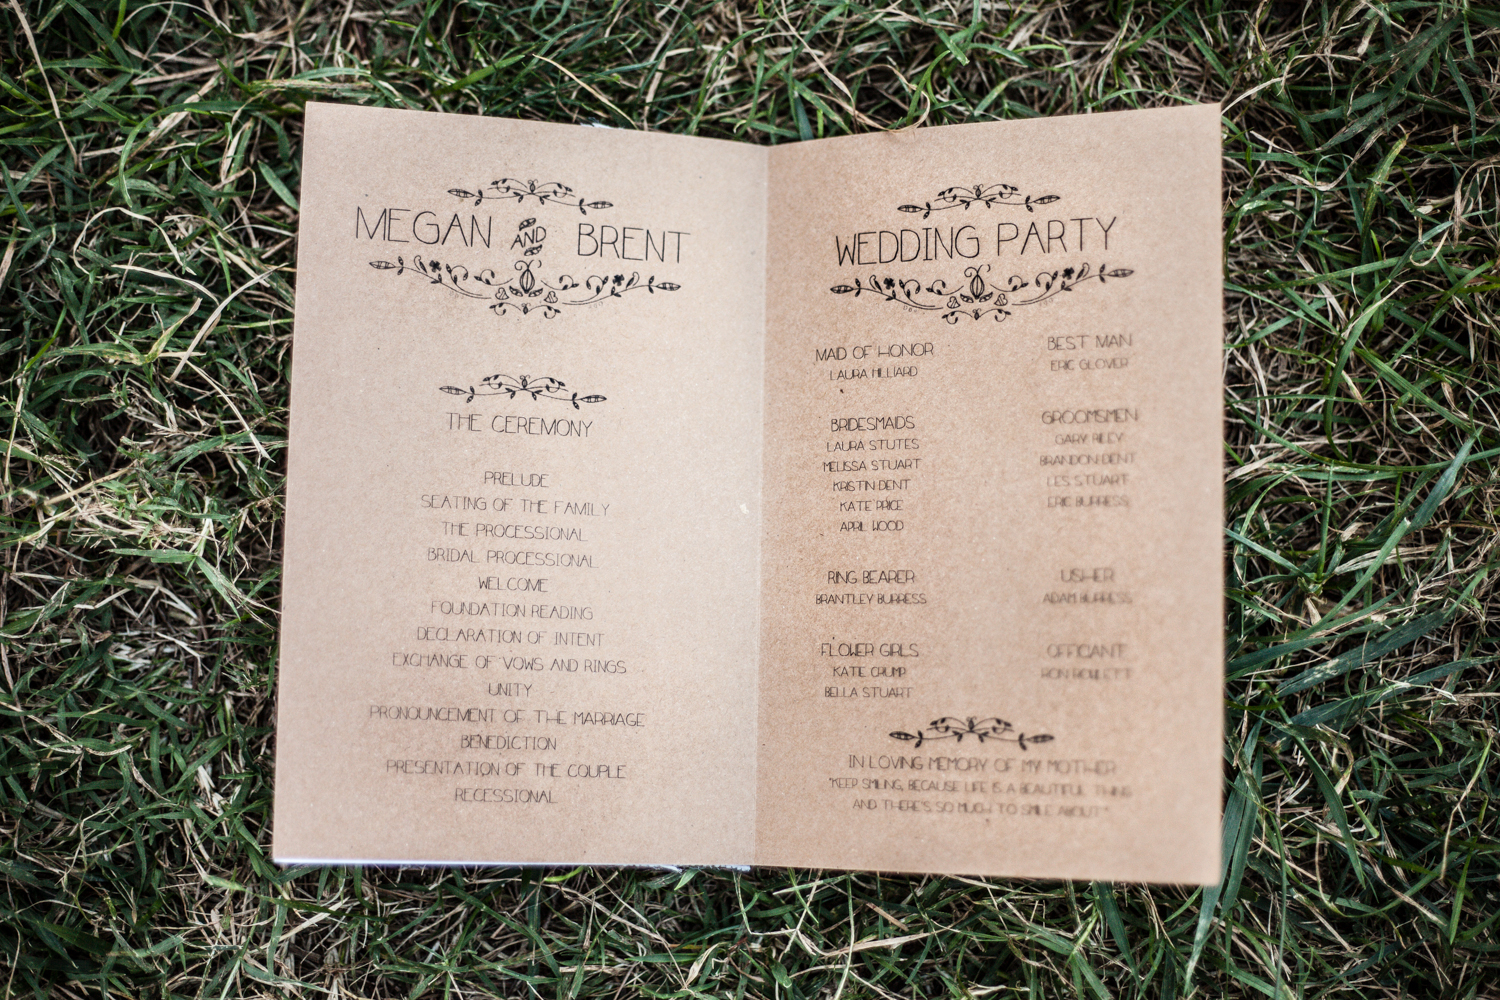 MEGAN AND BRENT
THE CEREMONY
PRELUDE
SEATING OF THE FAMILY
THE PROCESSIONAL
BRIDAL PROCESSIONAL
WELCOME
FOUNDATION READING
DECLARATION OF INTENT
EXCHANGE OF VOWS AND RINGS
UNITY
PRONOUNCEMENT OF THE MARRIAGE
BENEDICTION
PRESENTATION OF THE COUPLE
RECESSIONAL
WEDDING PARTY
MAID OF HONOR
LAURA HILLIARD
BRIDESMAIDS
LAURA STUTES
MELISSA STUART
KRISTIN DENT
KATE PRICE
APRIL WOOD
RING BEARER
BRANTLEY BURRESS
FLOWER GIRLS
KATIE CRUMP
BELLA STUART
BEST MAN
ERIC GLOVER
GROOMSMEN
GARY RILEY
BRANDON DENT
LES STUART
ERIC BURRESS
USHER
ADAM BURRESS
OFFICIANT
RON ROULETT
IN LOVING MEMORY OF MY MOTHER
"KEEP SMILING, BECAUSE LIFE IS A BEAUTIFUL THING
AND THERE'S SO MUCH TO SMILE ABOUT."